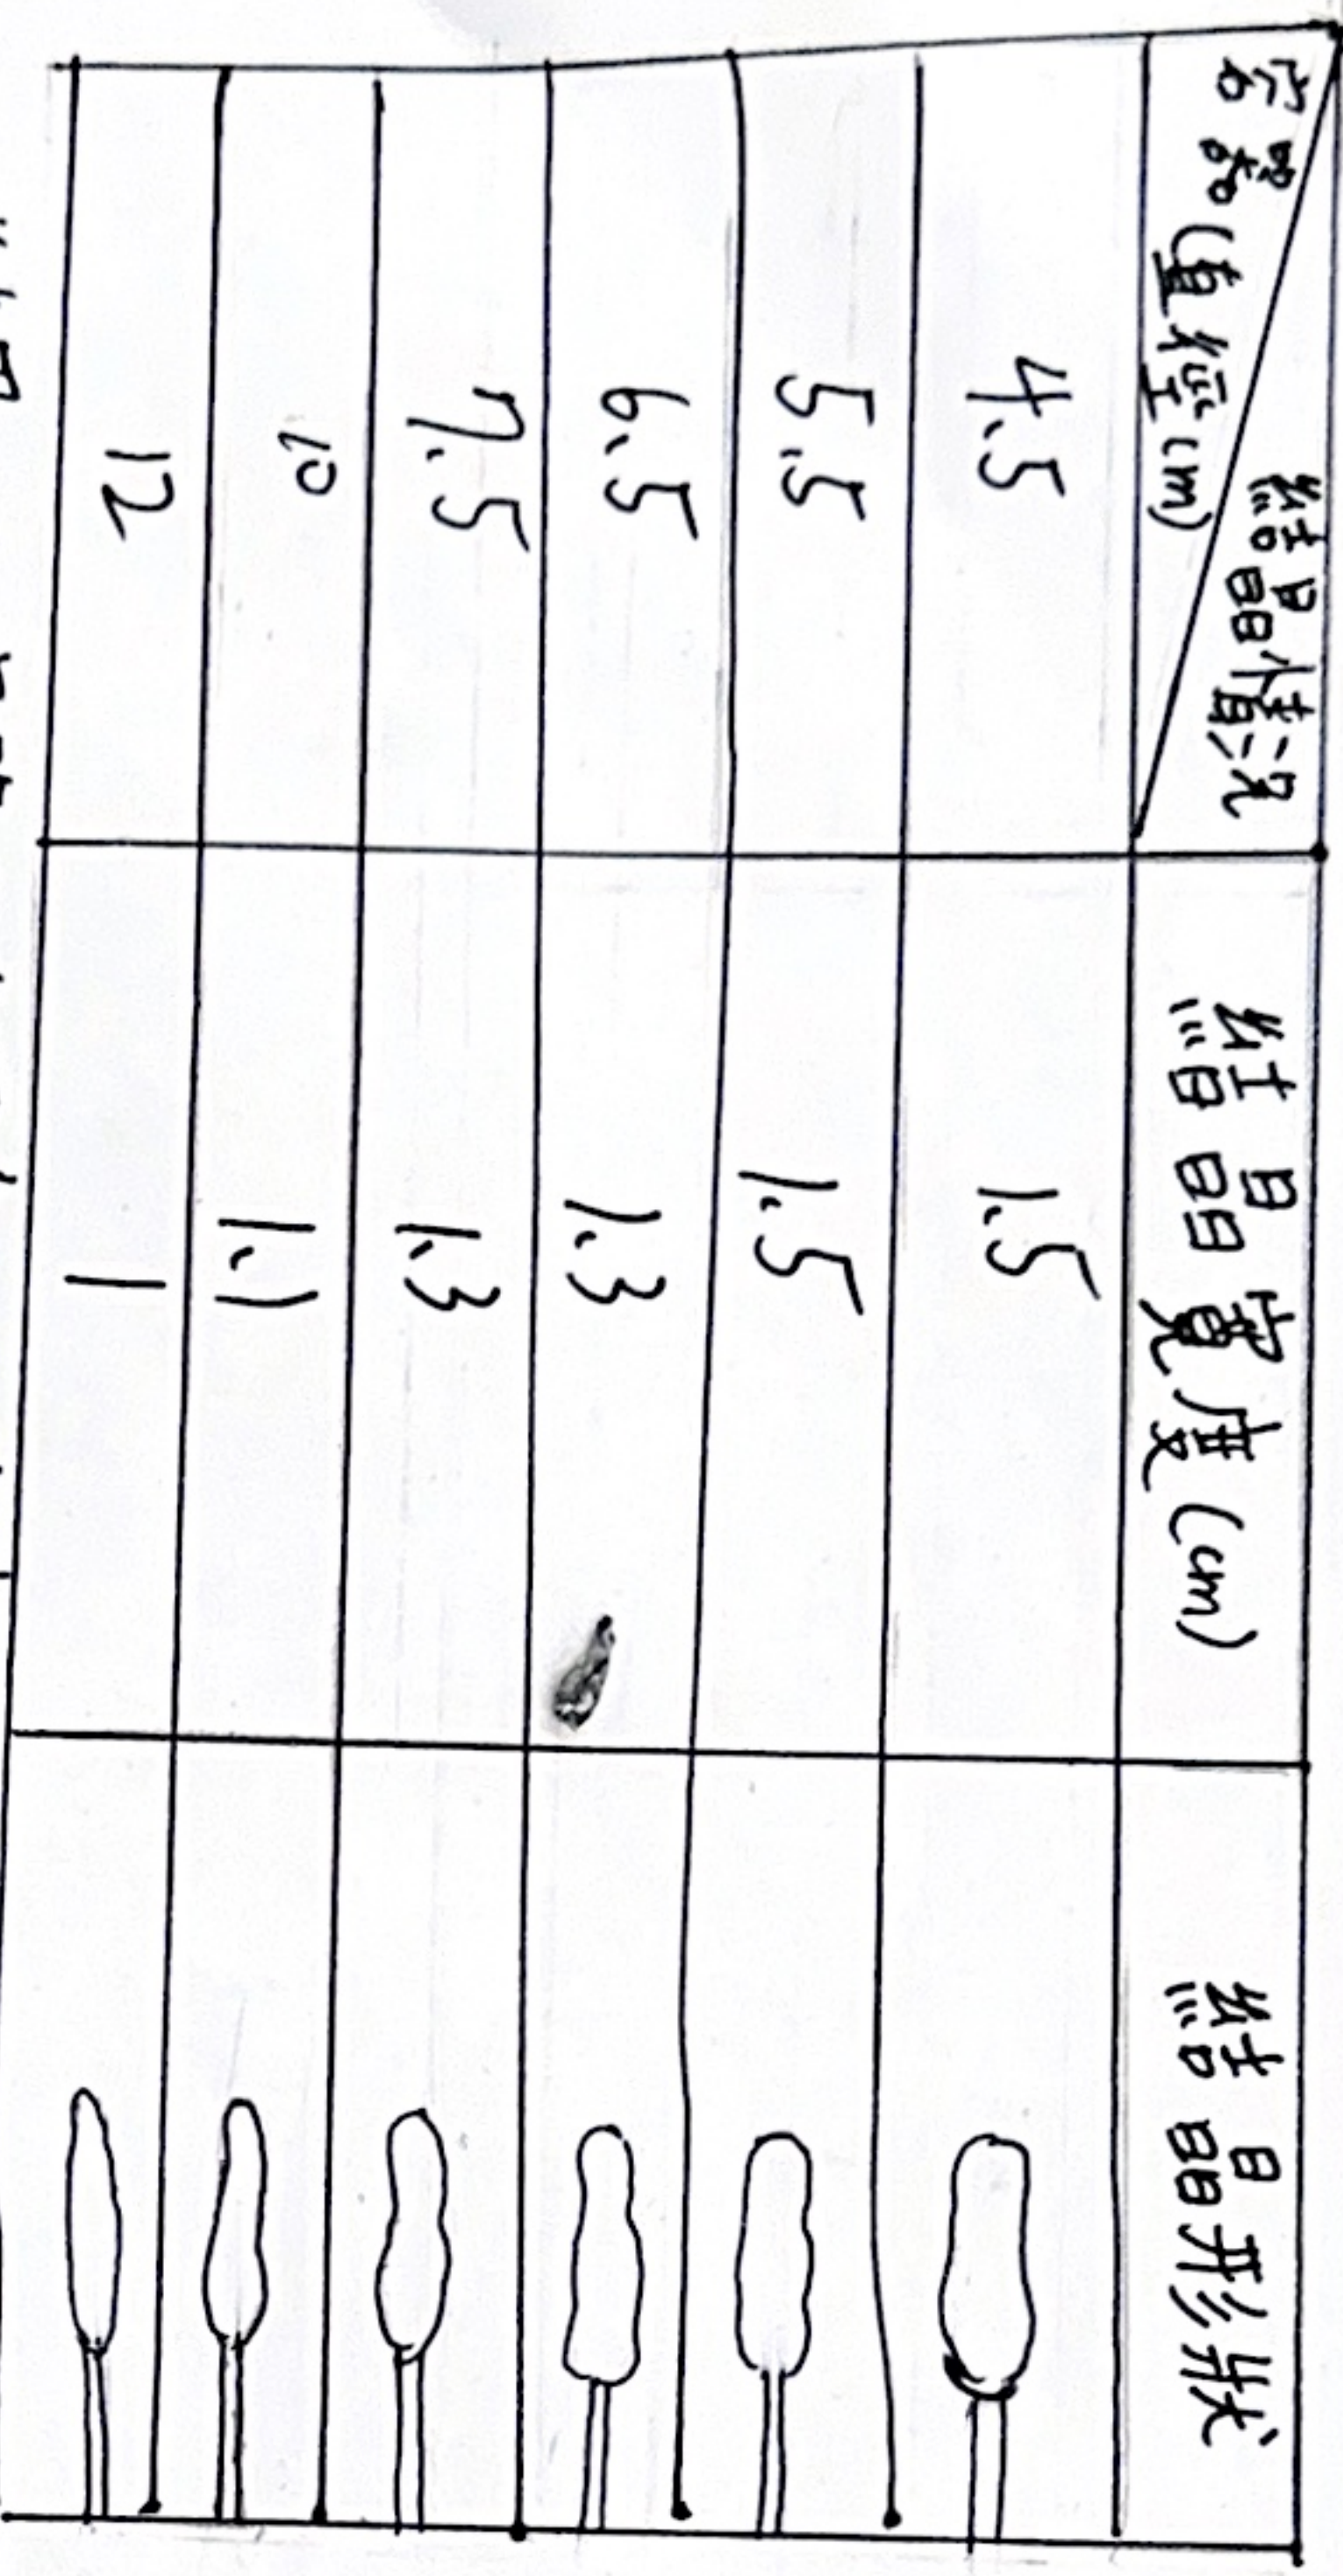 結晶情況
容器(直徑cm)
結晶寬度(cm)
結晶形狀
4.5 1.5
5.5 1.5
6.5 1.3
7.5 1.3
10 1.1
12 1